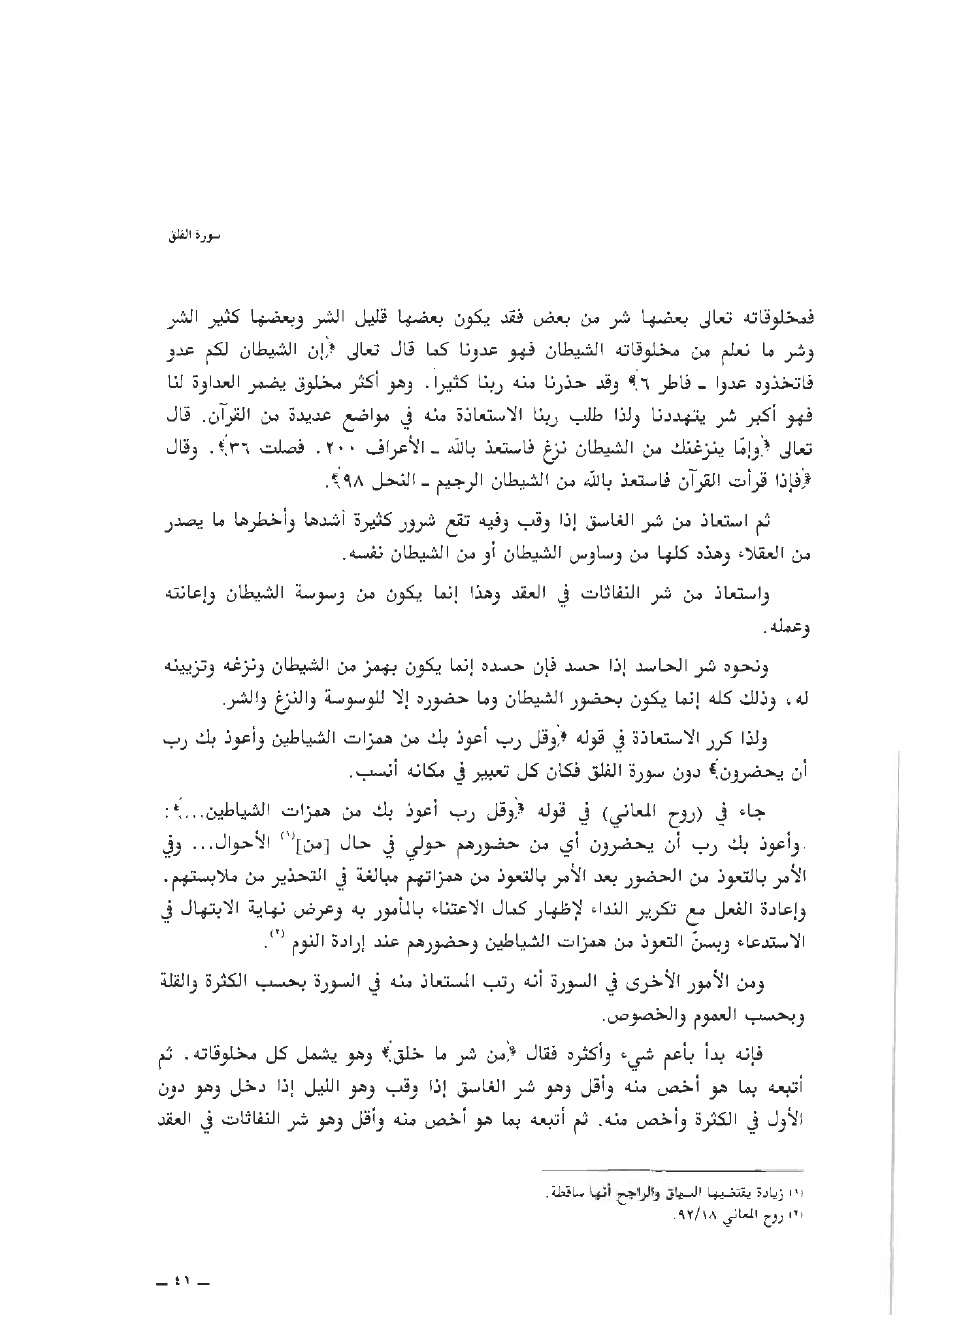 سورة الفلق
فمخلوقاته تعالى بعضها شر من بعض فقد يكون بعضها قليل الشر وبعضها كثير الشر
وشر ما نعلم من مخلوقاته الشيطان فهو عدونا كما قال تعالى ﴿إن الشيطان لكم عدو
فاتخذوه عدوا ـ فاطر ٦﴾ وقد حذرنا منه ربنا كثيرا. وهو أكثر مخلوق يضمر العداوة لنا
فهو أكبر شر يتهددنا ولذا طلب ربنا الاستعاذة منه في مواضع عديدة من القرآن. قال
تعالى ﴿وإمّا ينزغنك من الشيطان نزغ فاستعذ بالله ـ الأعراف ٢٠٠. فصلت ٣٦﴾. وقال
﴿فإذا قرأت القرآن فاستعذ بالله من الشيطان الرجيم ـ النحل ٩٨﴾.
ثم استعاذ من شر الغاسق إذا وقب وفيه تقع شرور كثيرة أشدها وأخطرها ما يصدر
من العقلاء وهذه كلها من وساوس الشيطان أو من الشيطان نفسه.
واستعاذ من شر النفاثات في العقد وهذا إنما يكون من وسوسة الشيطان وإعانته
وعمله.
ونحوه شر الحاسد إذا حسد فإن حسده إنما يكون بهمز من الشيطان ونزغه وتزيينه
له، وذلك كله إنما يكون بحضور الشيطان وما حضوره إلا للوسوسة والنزغ والشر.
ولذا كرر الاستعاذة في قوله ﴿وقل رب أعوذ بك من همزات الشياطين وأعوذ بك رب
أن يحضرون﴾ دون سورة الفلق فكان كل تعبير في مكانه أنسب.
جاء في (روح المعاني) في قوله ﴿وقل رب أعوذ بك من همزات الشياطين...﴾:
.وأعوذ بك رب أن يحضرون أي من حضورهم حولي في حال [من](١) الأحوال... وفي
الأمر بالتعوذ من الحضور بعد الأمر بالتعوذ من همزاتهم مبالغة في التحذير من ملابستهم.
وإعادة الفعل مع تكرير النداء لإظهار كمال الاعتناء بالمأمور به وعرض نهاية الابتهال في
الاستدعاء ويسنّ التعوذ من همزات الشياطين وحضورهم عند إرادة النوم (٢).
ومن الأمور الأخرى في السورة أنه رتب المستعاذ منه في السورة بحسب الكثرة والقلة
وبحسب العموم والخصوص.
فإنه بدأ بأعم شيء وأكثره فقال ﴿من شر ما خلق﴾ وهو يشمل كل مخلوقاته. ثم
أتبعه بما هو أخص منه وأقل وهو شر الغاسق إذا وقب وهو الليل إذا دخل وهو دون
الأول في الكثرة وأخص منه. ثم أتبعه بما هو أخص منه وأقل وهو شر النفاثات في العقد
(١) زيادة يقتضيها السياق والراجح أنها ساقطة.
(٢) روح المعاني ٩٢/١٨.
ـ ٤١ ـ